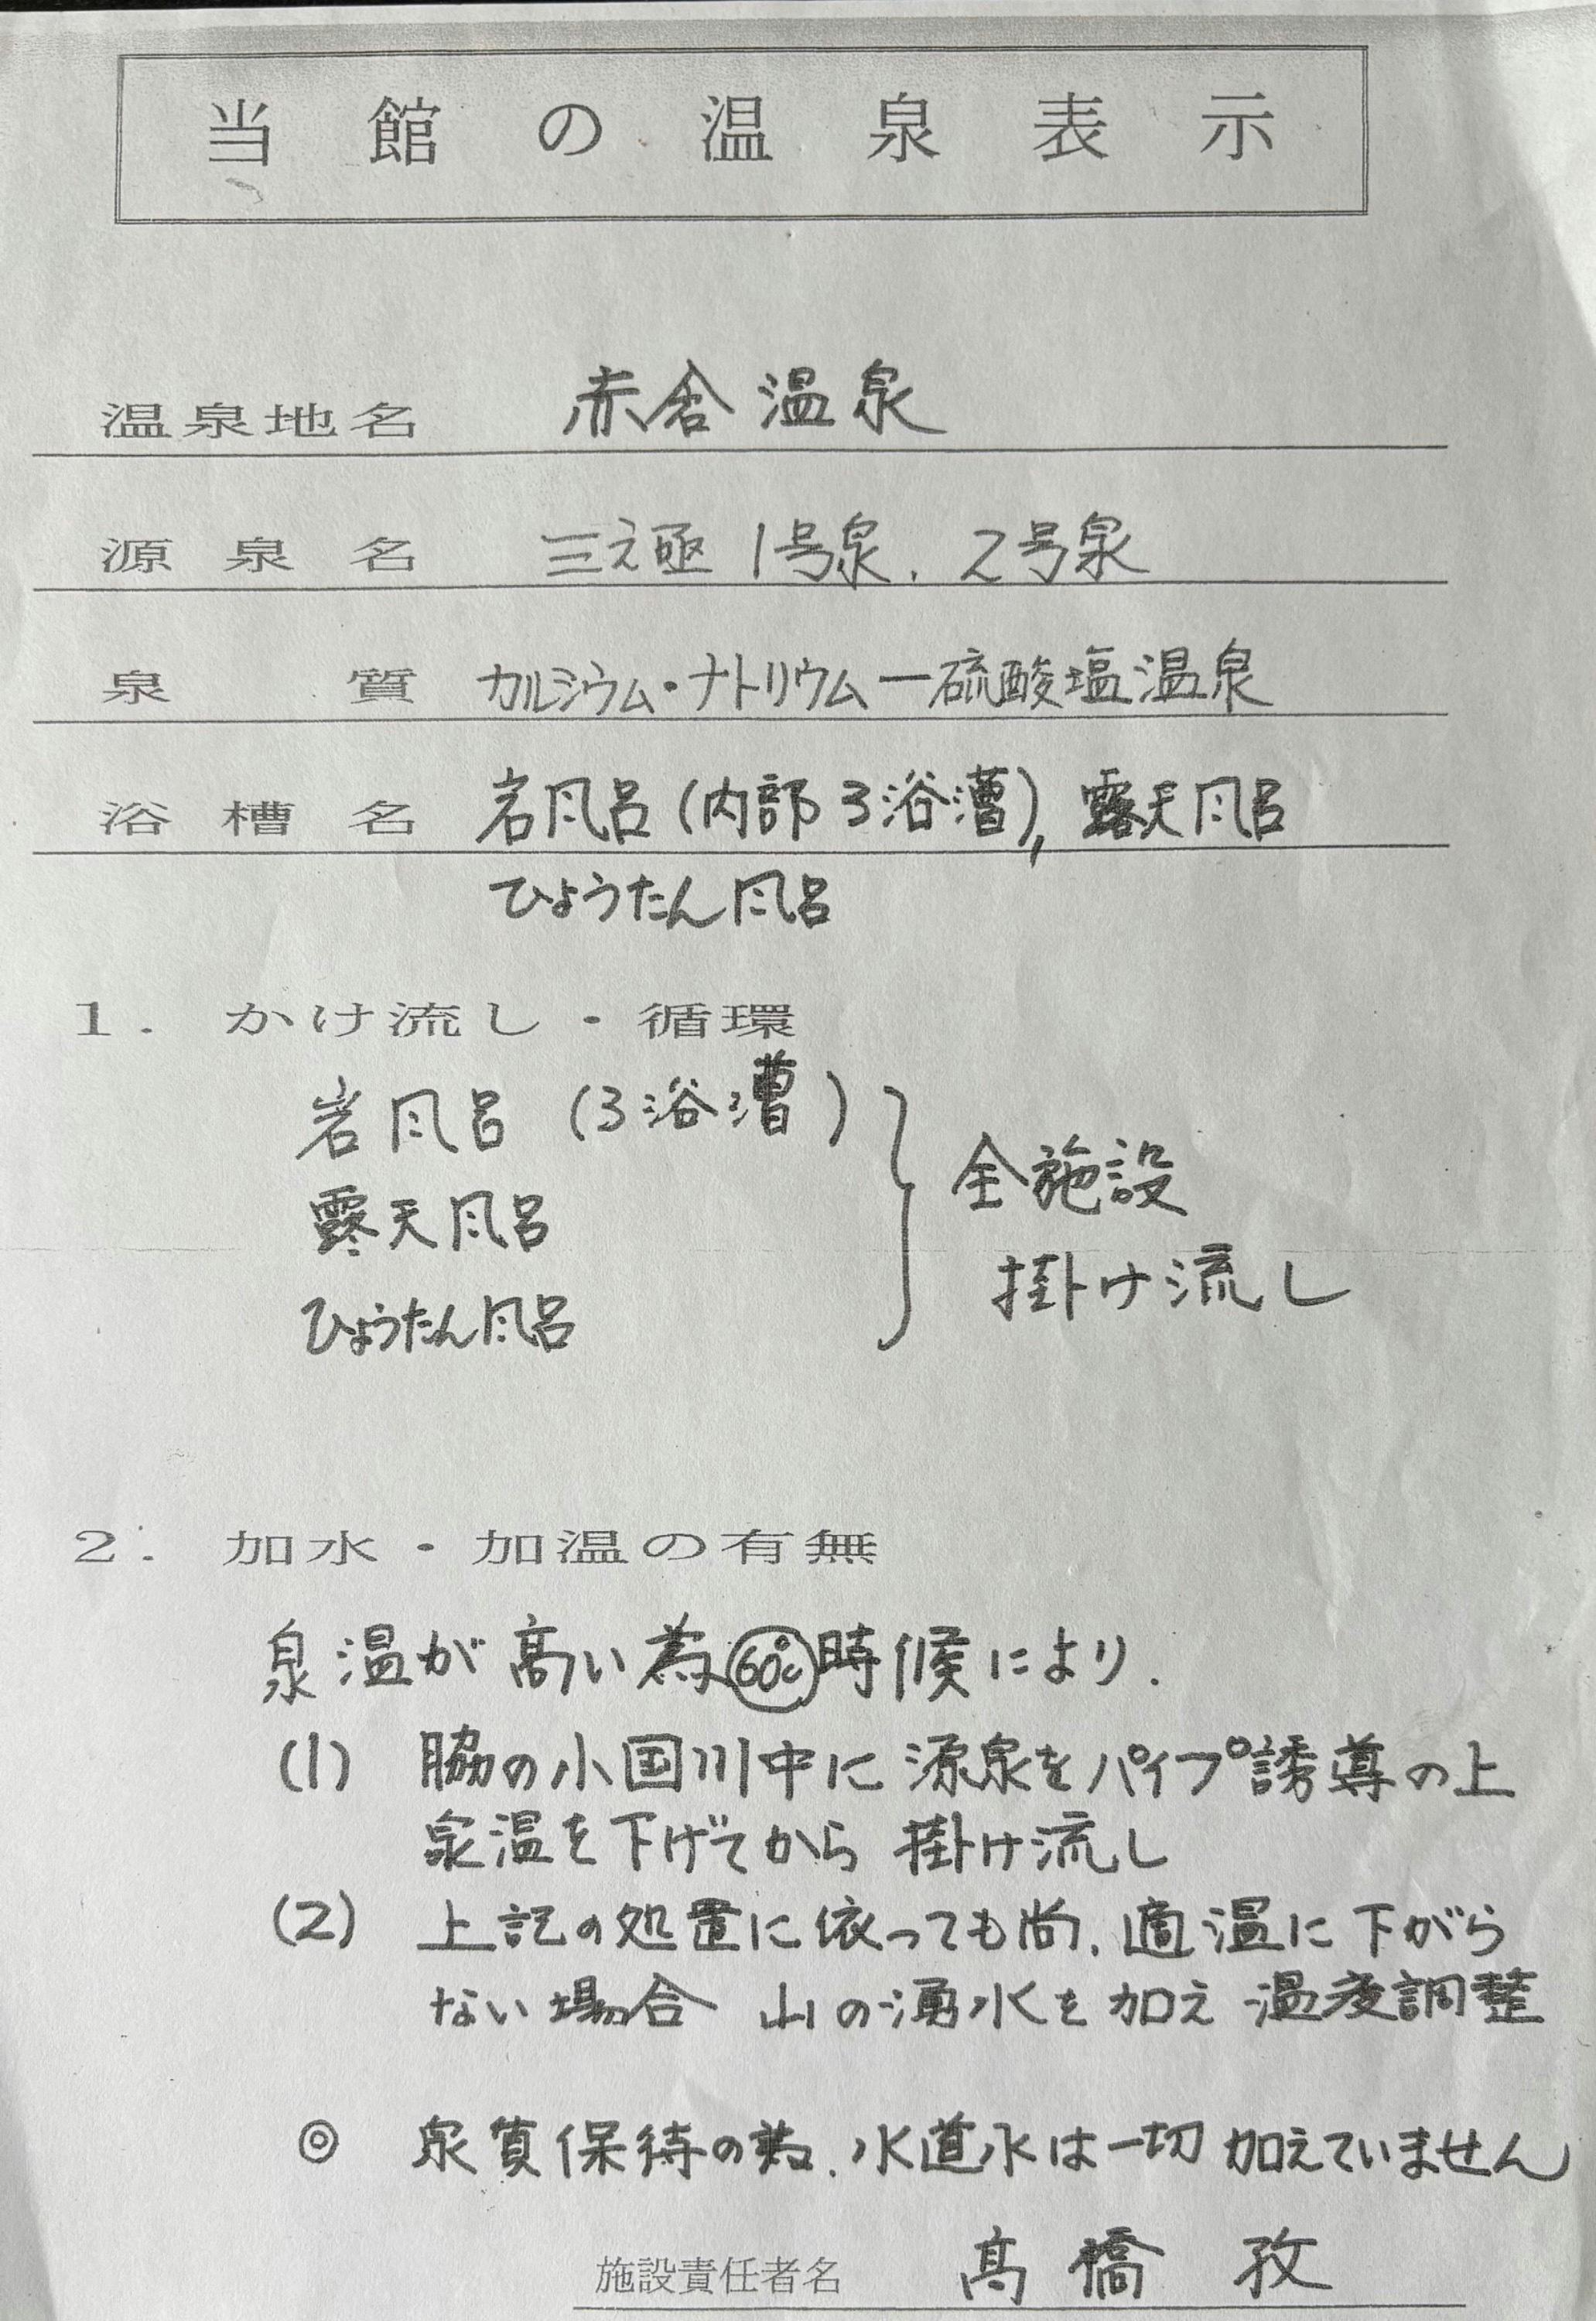 当館の温泉表示
温泉地名 赤倉温泉
源泉名 三之亟 1号泉、2号泉
泉質 カルシウム・ナトリウム一硫酸塩温泉
浴槽名 岩風呂(内部3浴漕),露天風呂
ひょうたん風呂
1. かけ流し・循環
岩風呂 (3浴漕)
露天風呂
ひょうたん風呂
全施設
掛け流し
2. 加水・加温の有無
泉温が高い為60℃時候により、
(1) 脇の小国川中に源泉をパイプ誘導の上
泉温を下げてから掛け流し
(2) 上記の処置に依っても尚、適温に下がら
ない場合 山の湧水を加え温度調整
◎ 泉質保持の為、水道水は一切加えていません
施設責任者名 高橋 孜